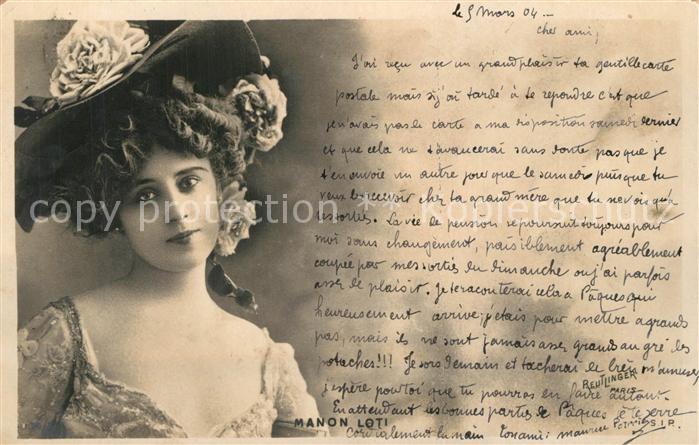 le 5 Mars 04 —
cher ami,
J'ai reçu avec un grand plaisir ta gentille carte
postale mais si j'ai tardé à te repondre c'est que
je n'avais pas le carte a ma disposition samedi dernier
et que cela ne t'avancerai sans doute pas que je
t'en envoie un autre jour que le samedi puisque tu
veux les recevoir chez ta grand mère que tu ne vois qu'a
les sorties. La vie de pension se poursuit toujours pour
moi sans changement, paisiblement agréablement
coupée par mes sorties du dimanche ou j'ai parfois
assez de plaisir. Je te raconterai cela a Pâques qui
heureusement arrive; j'étais pour mettre a grands
pas, mais ils ne sont jamais assez grands au gré des
potaches!!! Je sors demain et tacherai de bien m'amuser
j'espère pour toi que tu pourras en faire autant.
En attendant les bonnes parties de Pâques je te serre
cordialement la main Ton ami: maurice
REUTLINGER
PARIS
MANON LOTI
S.I.P.
copy protection for Kopierschutz